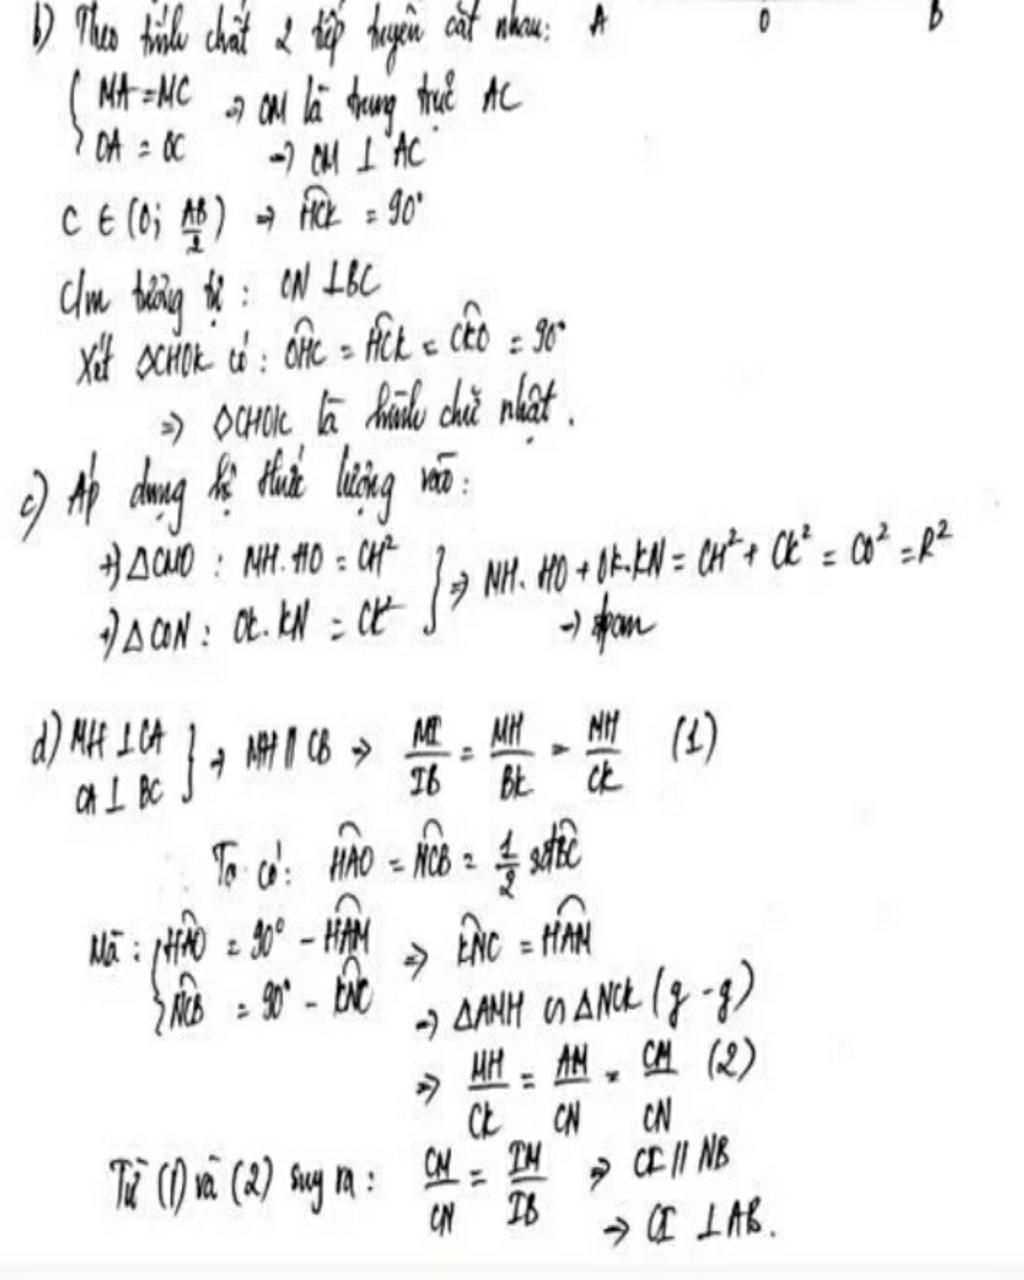 b) Theo tính chất 2 tiếp tuyến cắt nhau: A O B
{ MA = MC => OM là trung trực AC
OA = OC -> OM ⊥ AC
C ∈ (O; AB/2) => HCK = 90°
Cm tương tự: ON ⊥ BC
Xét ◇CHOK có: OHC = HCK = CKO = 90°
=> ◇CHOK là hình chữ nhật.
c) Áp dụng hệ thức lượng vào:
+) ΔCMO : MH. HO = CH²
+) ΔCON : OK. KN = CK² } => MH. HO + OK.KN = CH² + CK² = CO² = R²
-> đpcm
d) MH ⊥ CA
CA ⊥ BC } -> MH // CB => MI/IB = MH/BK = MH/CK (1)
Ta có: HAO = NCB = 1/2 sđBC
Mà : { HAO = 90° - HAM => KNC = HAM
NCB = 90° - KNC -> ΔAMH ∽ ΔNCK (g - g)
=> MH/CK = AM/CN = CM/CN (2)
Từ (1) và (2) suy ra: CM/CN = IM/IB => CI // NB
-> CI ⊥ AB.